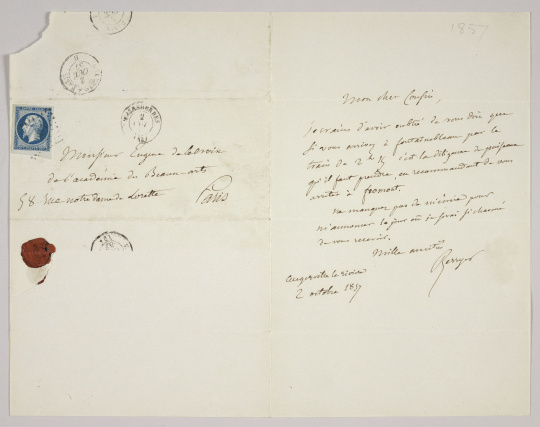 1857
MALESHERBES
2
Monsieur Eugène delacroix
de l'académie des Beaux-arts
58. Rue notre dame de Lorette
Paris
Mon cher Cousin,
je crains d'avoir oublié de vous dire que
si vous arrivez à fontainebleau par le
train de 2h ½ c'est la diligence de puiseaux
qu'il faut prendre, en recommandant de vous
arrêter à fromont.
ne manquez pas de m'écrire pour
m'annoncer le jour où je serai si charmé
de vous recevoir.
Mille amitiés
Berryer
augerville la rivière
2 octobre 1857